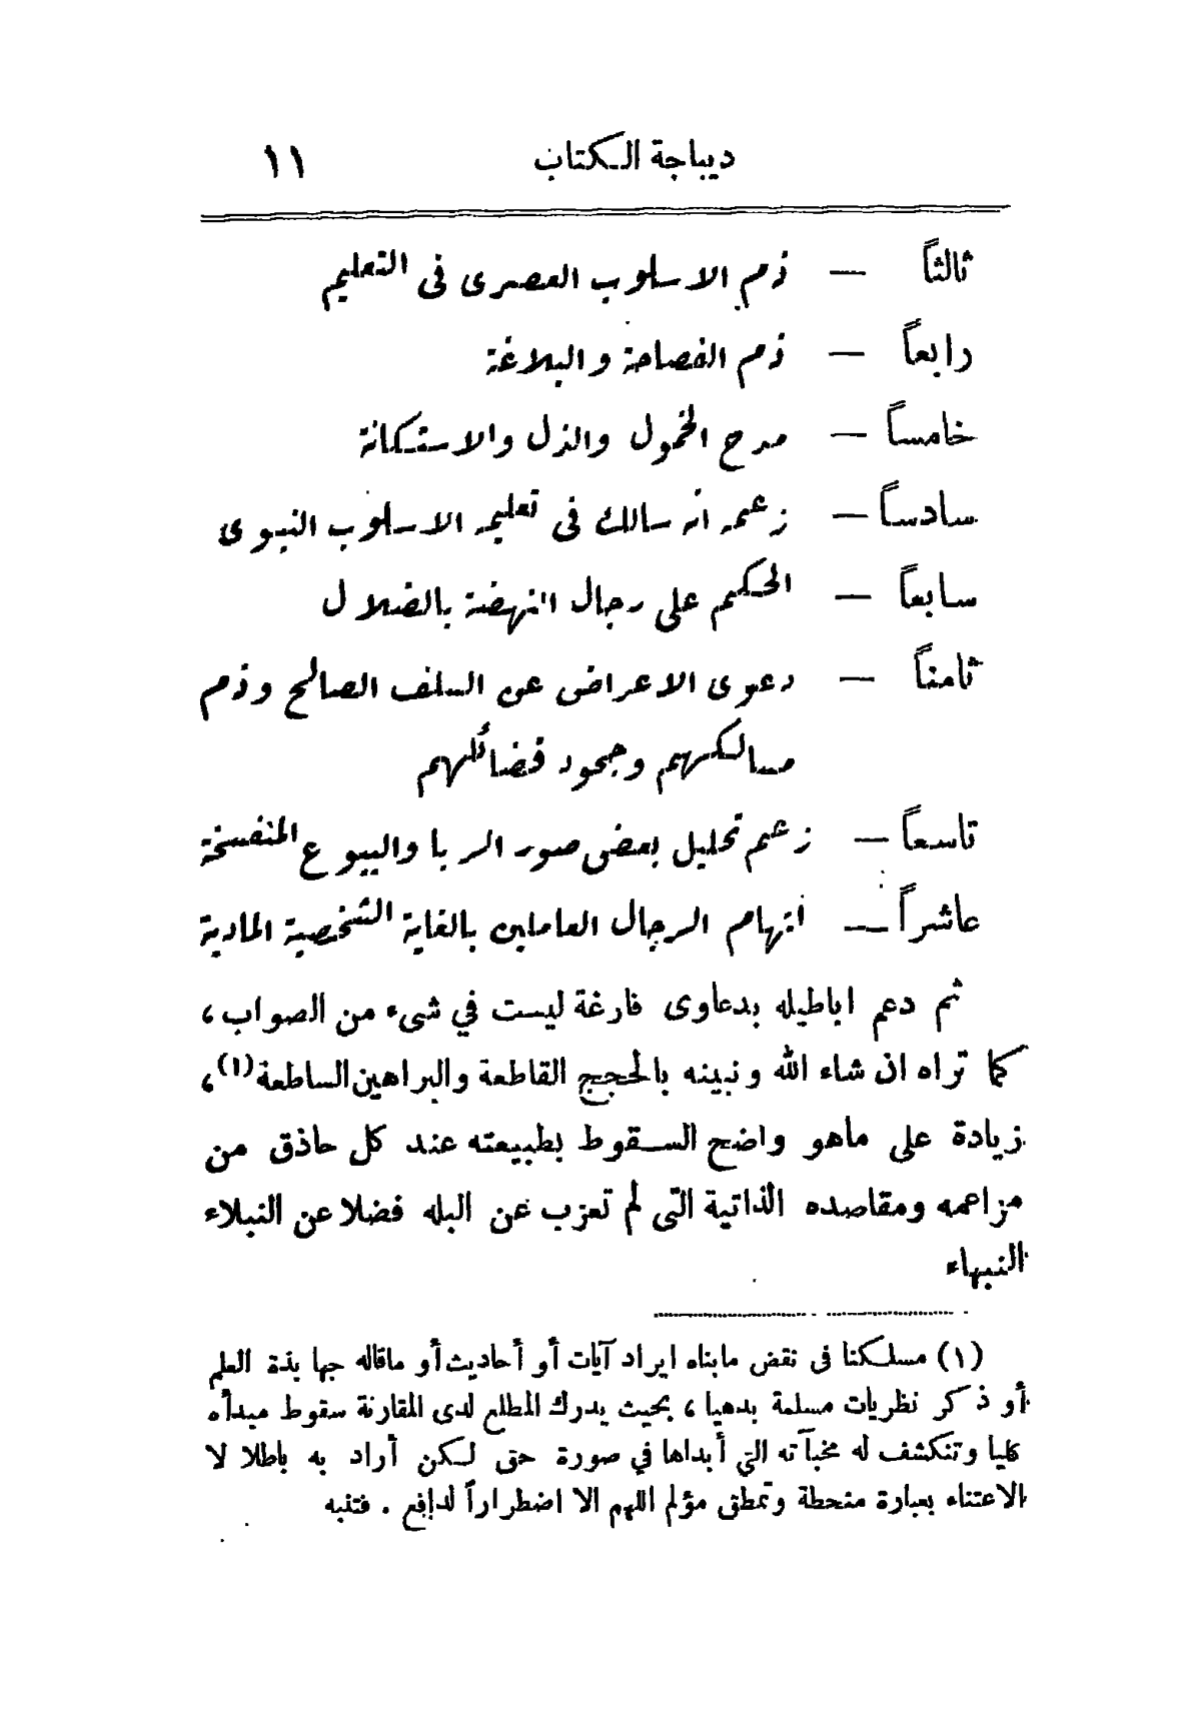 ديباجة الكتاب ١١
ثالثاً — ذم الاسلوب العصرى فى التعليم
رابعاً — ذم الفصاحة والبلاغة
خامساً — مدح الخمول والذل والاستكانة
سادساً — زعمه انه سالك فى تعليمه الاسلوب النبوى
سابعاً — الحكم على رجال النهضة بالضلال
ثامناً — دعوى الاعراض عن السلف الصالح وذم
مسالكهم وجحود فضائلهم
تاسعاً — زعم تحليل بعض صور الربا والبيوع المنفسخة
عاشراً — اتهام الرجال العاملين بالغاية الشخصية المادية
ثم دعم اباطيله بدعاوى فارغة ليست في شىء من الصواب ،
كما تراه ان شاء الله ونبينه بالحجج القاطعة والبراهين الساطعة (١) ،
زيادة على ماهو واضح السقوط بطبيعته عند كل حاذق من
مزاعمه ومقاصده الذاتية التى لم تعزب عن البله فضلا عن النبلاء
النبهاء
(١) مسلكنا فى نقض مابناه ايراد آيات أو أحاديث أو ماقاله جهابذة العلم
أو ذكر نظريات مسلمة بدهيا ، بحيث يدرك المطلع لدى المقارنة سقوط مبدأه
كليا وتنكشف له مخبآته التي أبداها في صورة حق لكن أراد به باطلا لا
الاعتناء بعبارة منحطة وتمطق مؤلم اللهم الا اضطراراً لدافع . فتنبه